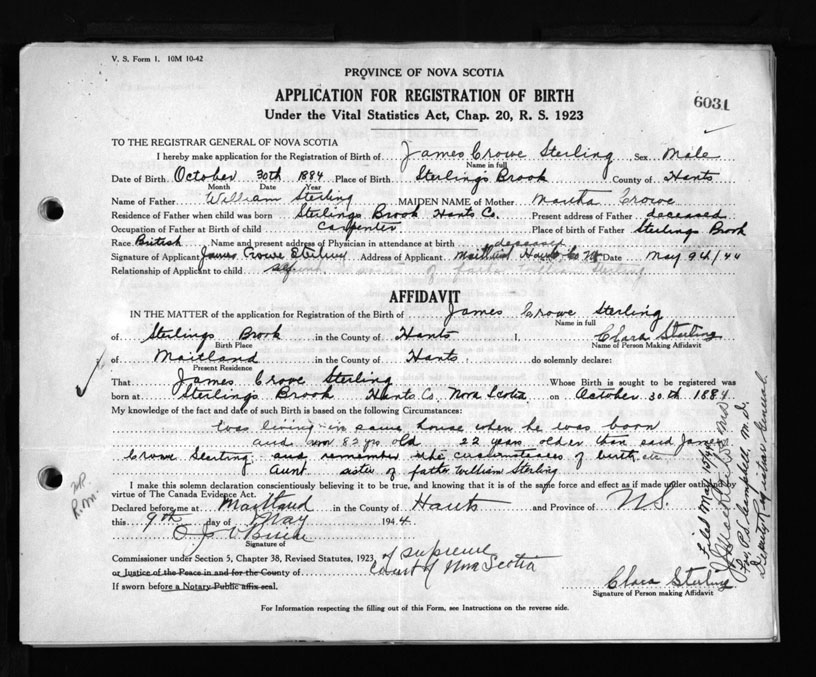 V. S. Form 1. 10M 10-42
PROVINCE OF NOVA SCOTIA
APPLICATION FOR REGISTRATION OF BIRTH
6031
Under the Vital Statistics Act, Chap. 20, R. S. 1923
TO THE REGISTRAR GENERAL OF NOVA SCOTIA
I hereby make application for the Registration of Birth of James Crowe Sterling Sex Male
Name in full
Date of Birth October 30th 1884 Place of Birth Sterlings Brook County of Hants
Month Date Year
Name of Father William Sterling MAIDEN NAME of Mother Martha Crowe
Residence of Father when child was born Sterlings Brook Hants Co. Present address of Father deceased
Occupation of Father at Birth of child Carpenter Place of birth of Father Sterlings Brook
Race British Name and present address of Physician in attendance at birth deceased
Signature of Applicant James Crowe Sterling Address of Applicant Maitland Hants Co NS Date May 9th/44
Relationship of Applicant to child self
AFFIDAVIT
IN THE MATTER of the application for Registration of the Birth of James Crowe Sterling
Name in full
of Sterlings Brook in the County of Hants I, Clara Sterling
Birth Place Name of Person Making Affidavit
of Maitland in the County of Hants, do solemnly declare:
Present Residence
That James Crowe Sterling Whose Birth is sought to be registered was
born at Sterlings Brook Hants Co. Nova Scotia on October 30th 1884
My knowledge of the fact and date of such Birth is based on the following Circumstances:
Was living in same house when he was born
and am 82 yrs old 22 years older than said James
Crowe Sterling and remember the circumstances of birth etc
Aunt sister of father William Sterling
I make this solemn declaration conscientiously believing it to be true, and knowing that it is of the same force and effect as if made under oath and by
virtue of The Canada Evidence Act.
Declared before me at Maitland in the County of Hants and Province of N.S.
this 9th day of May 1944.
Signature of
Commissioner under Section 5, Chapter 38, Revised Statutes, 1923, of Supreme
or Justice of the Peace in and for the County of Court of Nova Scotia
If sworn before a Notary Public affix seal.
Clara Sterling
Signature of Person making Affidavit
For Information respecting the filling out of this Form, see Instructions on the reverse side.
Filed May 15/44
Per P.S. Campbell, M.D.
Deputy Registrar General